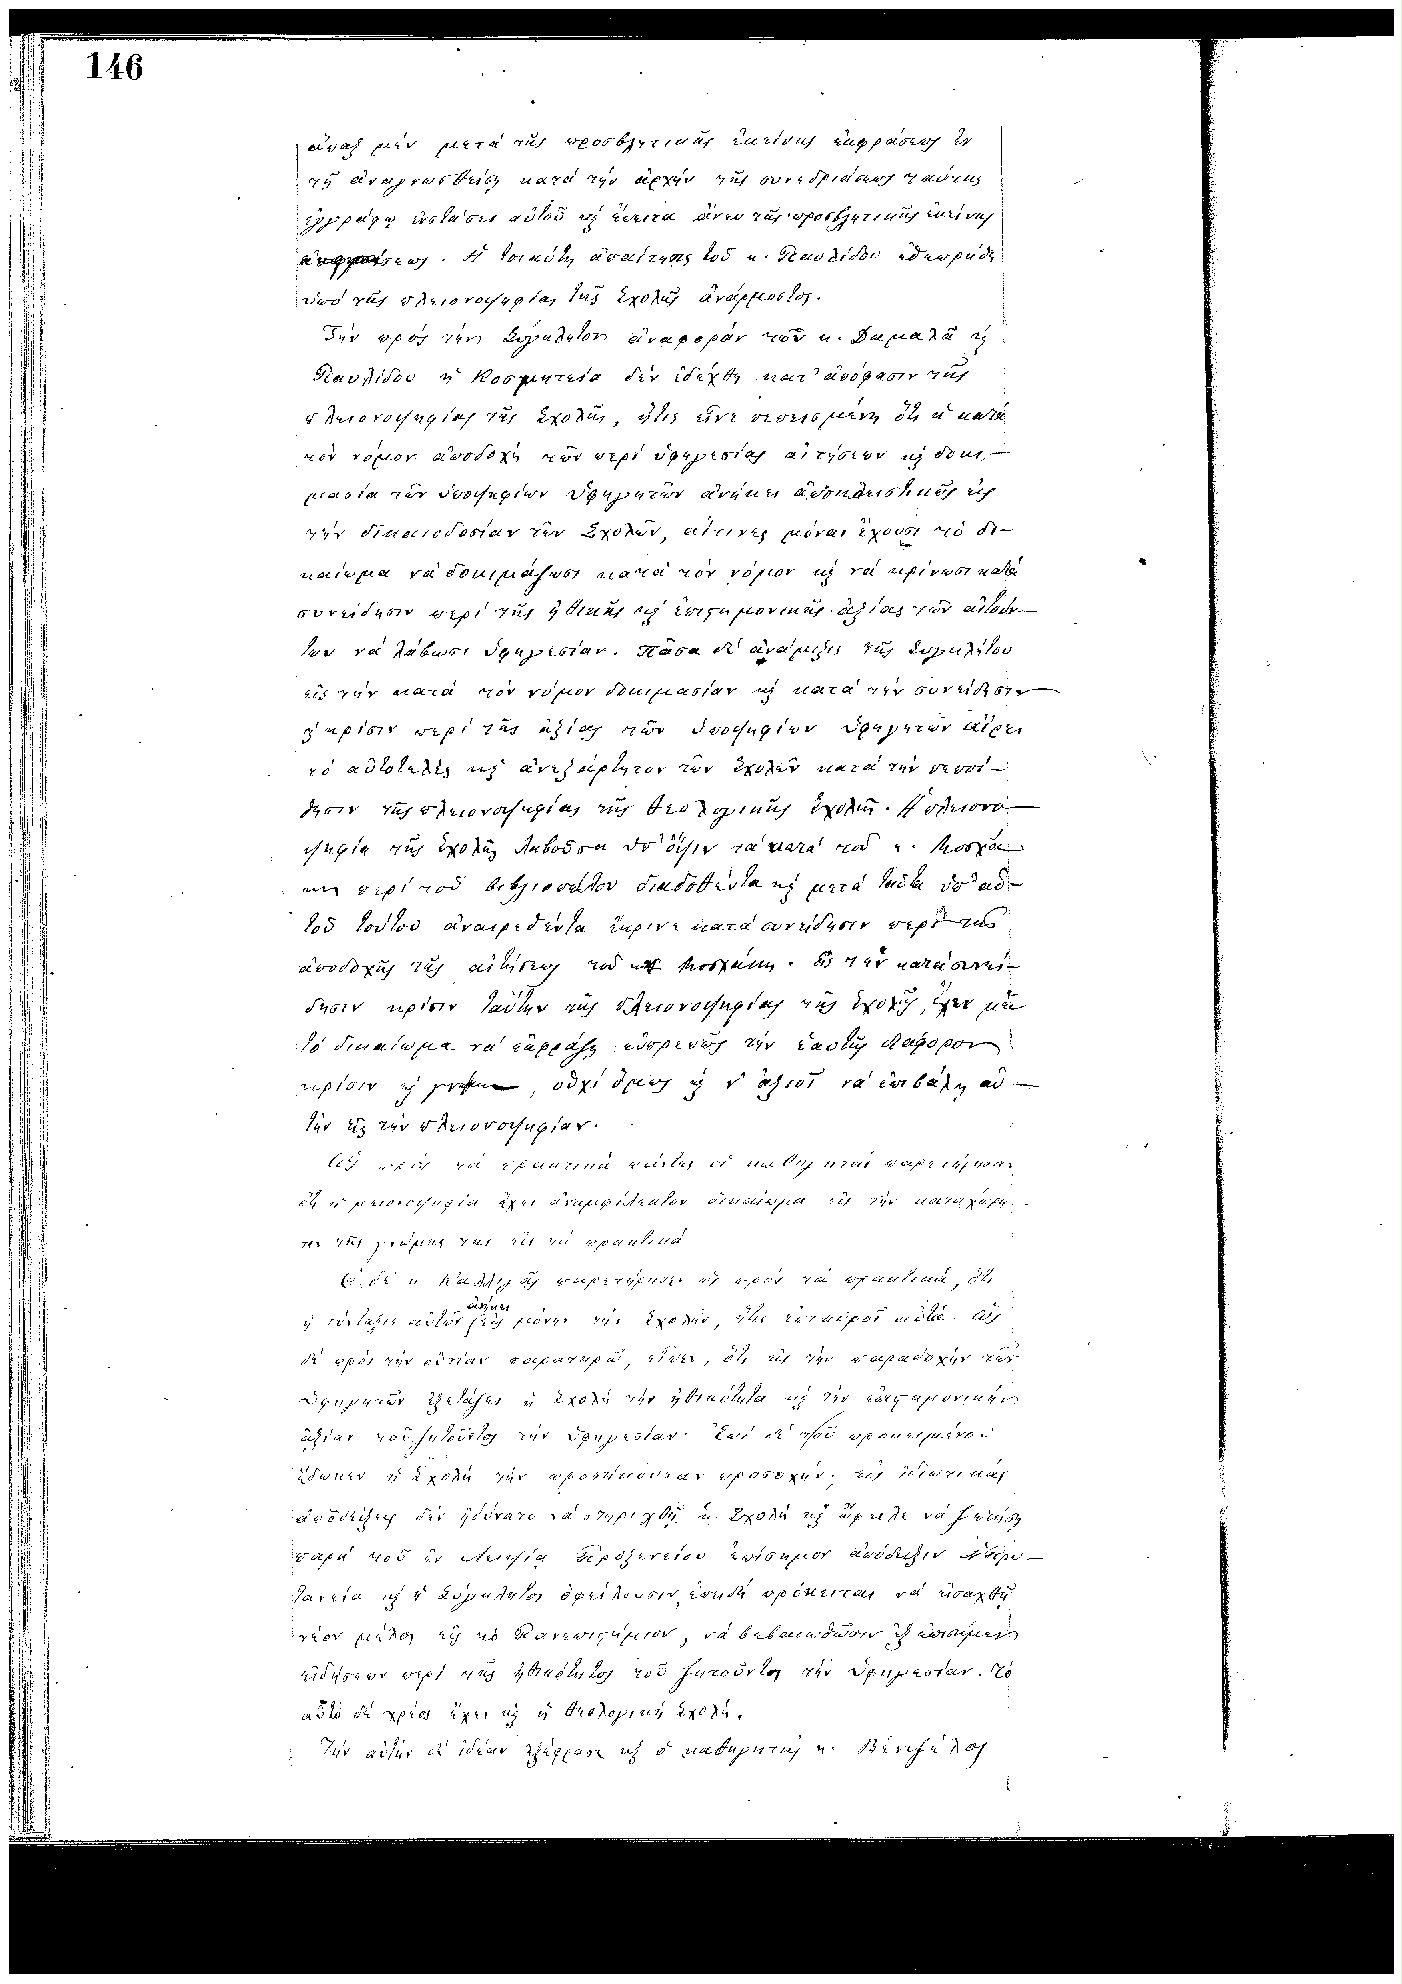 146
ἅπαξ μέν μετά τῆς προσβλητικῆς ἐκείνης ἐκφράσεως ἐν
τῇ ἀναγνωσθείσῃ κατά τήν ἀρχήν τῆς συνεδριάσεως ταύτης
ἐγγράφῳ ἐνστάσει αὐτοῦ κ ἔπειτα ἄνευ τῆς προσβλητικῆς ἐκείνης
ἐκφράσεως. Ἡ τοιαύτη ἀπαίτησις τοῦ κ. Παυλίδου ἐθεωρήθη
ὑπό τῆς πλειονοψηφίας τῆς Σχολῆς ἀνάρμοστος.
Τήν πρός τήν Σύγκλητον ἀναφοράν τοῦ κ. Δαμαλᾶ κ
Παυλίδου ἡ Κοσμητεία δέν ἐδέχθη κατ' ἀπόφασιν τῆς
πλειονοψηφίας τῆς Σχολῆς, ἥτις εἶνε πεπεισμένη ὅτι ἡ κατά
τόν νόμον ἀποδοχή τῶν περί ὑφηγεσίας αἰτήσεων κ δοκι-
μασία τῶν ὑποψηφίων ὑφηγητῶν ἀνήκει ἀποκλειστικῶς εἰς
τήν δικαιοδοσίαν τῶν Σχολῶν, αἵτινες μόναι ἔχουσι τό δι-
καίωμα νά δοκιμάζωσι κατά τόν νόμον κ νά κρίνωσι κατά
συνείδησιν περί τῆς ἠθικῆς κ ἐπιστημονικῆς ἀξίας τῶν αἰτούν-
των νά λάβωσι ὑφηγεσίαν. Πᾶσα δέ ἀνάμιξις τῆς Συγκλήτου
εἰς τήν κατά τόν νόμον δοκιμασίαν κ κατά τήν συνείδησιν
κρίσιν περί τῆς ἀξίας τῶν ὑποψηφίων ὑφηγητῶν αἴρει
τό αὐτοτελές κ ἀνεξάρτητον τῶν Σχολῶν κατά τήν πεποί-
θησιν τῆς πλειονοψηφίας τῆς Θεολογικῆς Σχολῆς. Ἡ πλειονο-
ψηφία τῆς Σχολῆς λαβοῦσα ὑπ' ὄψιν τά κατά τοῦ κ. Μοσχά-
κη περί τοῦ διαδοθέντα κ μετά ταῦτα ὑπ' αὐ-
τοῦ τούτου ἀναιρεθέντα ἔκρινε κατά συνείδησιν περί τῆς
ἀποδοχῆς τῆς αἰτήσεως τοῦ κ Μοσχάκη. Εἰς τήν κατά συνεί-
δησιν κρίσιν ταύτην τῆς πλειονοψηφίας τῆς Σχολῆς, ἔχει μέν
τό δικαίωμα νά ἐκφράσῃ τήν ἑαυτῆς διάφορον
κρίσιν κ γνώμην, οὐχί ὅμως κ ν' ἀξιοῖ νά ἐπιβάλῃ αὐ-
τήν εἰς τήν πλειονοψηφίαν.
Ὡς πρός τά πρακτικά πάντες οἱ καθηγηταί παρετήρησαν
ὅτι ἡ μειονοψηφία ἔχει ἀναμφίλεκτον δικαίωμα εἰς τήν καταχώρη-
σιν τῆς γνώμης της εἰς τά πρακτικά
Ὁ δέ κ Καλλιγᾶς παρετήρησε ὡς πρός τά πρακτικά, ὅτι
ἡ σύνταξις αὐτῶν ἀνήκει εἰς μόνην τήν Σχολήν, ἥτις ἐπικυροῖ αὐτά. Ὡς
δέ πρός τήν οὐσίαν παρατηρῶ, εἶπεν, ὅτι εἰς τήν παραδοχήν τῶν
ὑφηγητῶν ἐξετάζει ἡ Σχολή τήν ἠθικότητα κ τήν ἐπιστημονικήν
ἀξίαν τοῦ ζητοῦντος τήν ὑφηγεσίαν. Ἐπί δέ τοῦ προκειμένου
ἔδωκεν ἡ Σχολή τήν προσήκουσαν προσοχήν; εἰς ἰδιωτικάς
ἀποδείξεις δέν ἠδύνατο νά στηριχθῇ ἡ Σχολή κ ὤφειλε νά ζητήσῃ
παρά τοῦ ἐν Λειψίᾳ Προξενείου ἐπίσημον ἀπόδειξιν. Ἡ Πρυ-
τανεία κ ἡ Σύγκλητος ὀφείλουσιν, ἐπειδή πρόκειται νά εἰσαχθῇ
νέον μέλος εἰς τό Πανεπιστήμιον, νά βεβαιωθῶσιν ἐξ ἐπισήμων
εἰδήσεων περί τῆς ἠθικότητος τοῦ ζητοῦντος τήν ὑφηγεσίαν. Τό
αὐτό δέ χρέος ἔχει κ ἡ Θεολογική Σχολή.
Τήν αὐτήν δέ ἰδέαν ἐξέφρασε κ ὁ καθηγητής κ. Βενιζέλος